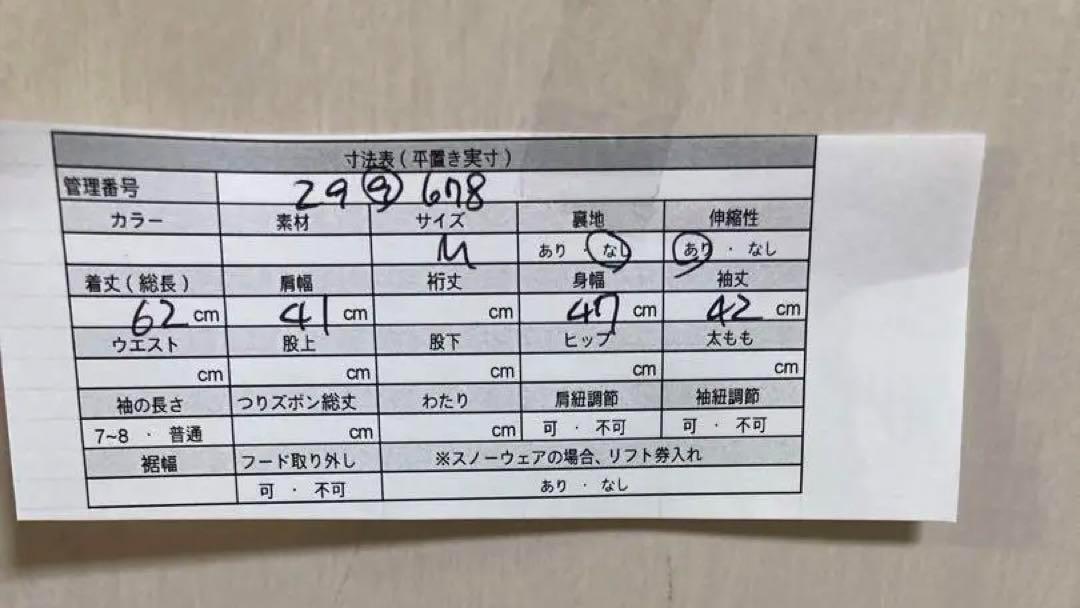 寸法表(平置き実寸)
管理番号 29 9 678
カラー 素材 サイズ 裏地 伸縮性
M あり なし あり ・ なし
着丈(総長) 肩幅 裄丈 身幅 袖丈
62 cm 41 cm cm 47 cm 42 cm
ウエスト 股上 股下 ヒップ 太もも
cm cm cm cm cm
袖の長さ つりズボン総丈 わたり 肩紐調節 袖紐調節
7~8 ・ 普通 cm cm 可 ・ 不可 可 ・ 不可
裾幅 フード取り外し ※スノーウェアの場合、リフト券入れ
可 ・ 不可 あり ・ なし